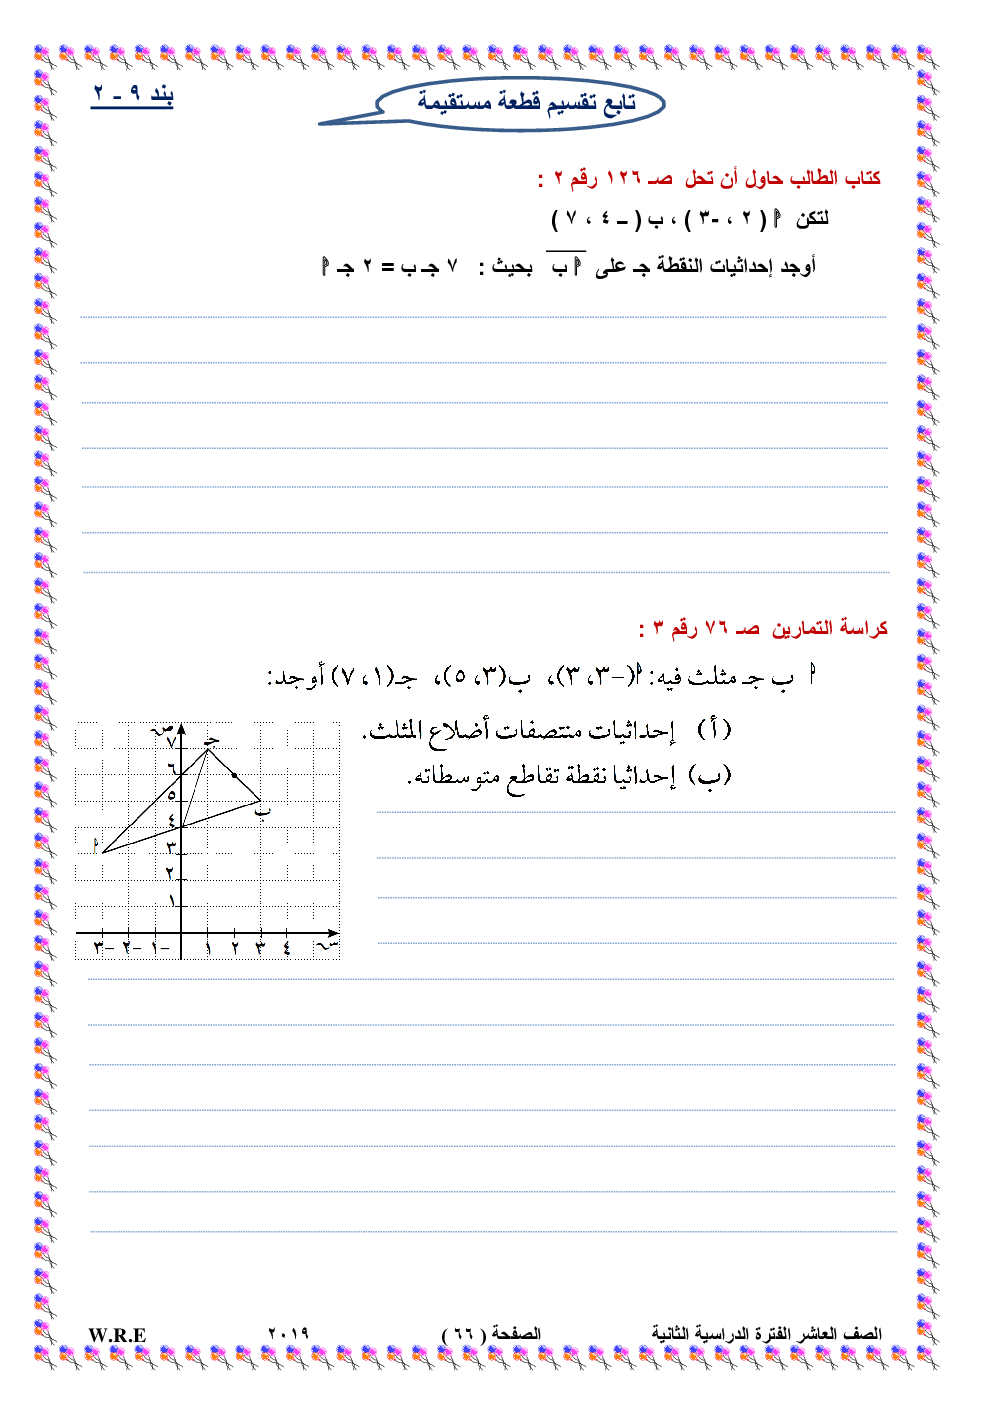 بند ٩ - ٢
تابع تقسيم قطعة مستقيمة
كتاب الطالب حاول أن تحل صـ ١٢٦ رقم ٢ :
لتكن أ ( ٢ ، -٣ ) ، ب ( – ٤ ، ٧ )
أوجد إحداثيات النقطة جـ على أ ب بحيث : ٧ جـ ب = ٢ جـ أ
كراسة التمارين صـ ٧٦ رقم ٣ :
أ ب جـ مثلث فيه: أ(-٣، ٣)، ب(٣، ٥)، جـ(١، ٧) أوجد:
(أ) إحداثيات منتصفات أضلاع المثلث.
(ب) إحداثيا نقطة تقاطع متوسطاته.
ص
جـ
٧
٦
٥
ب
٤
أ
٣
٢
١
٣- ٢- ١- ١ ٢ ٣ ٤ س
الصف العاشر الفترة الدراسية الثانية الصفحة ( ٦٦ ) ٢٠١٩ W.R.E